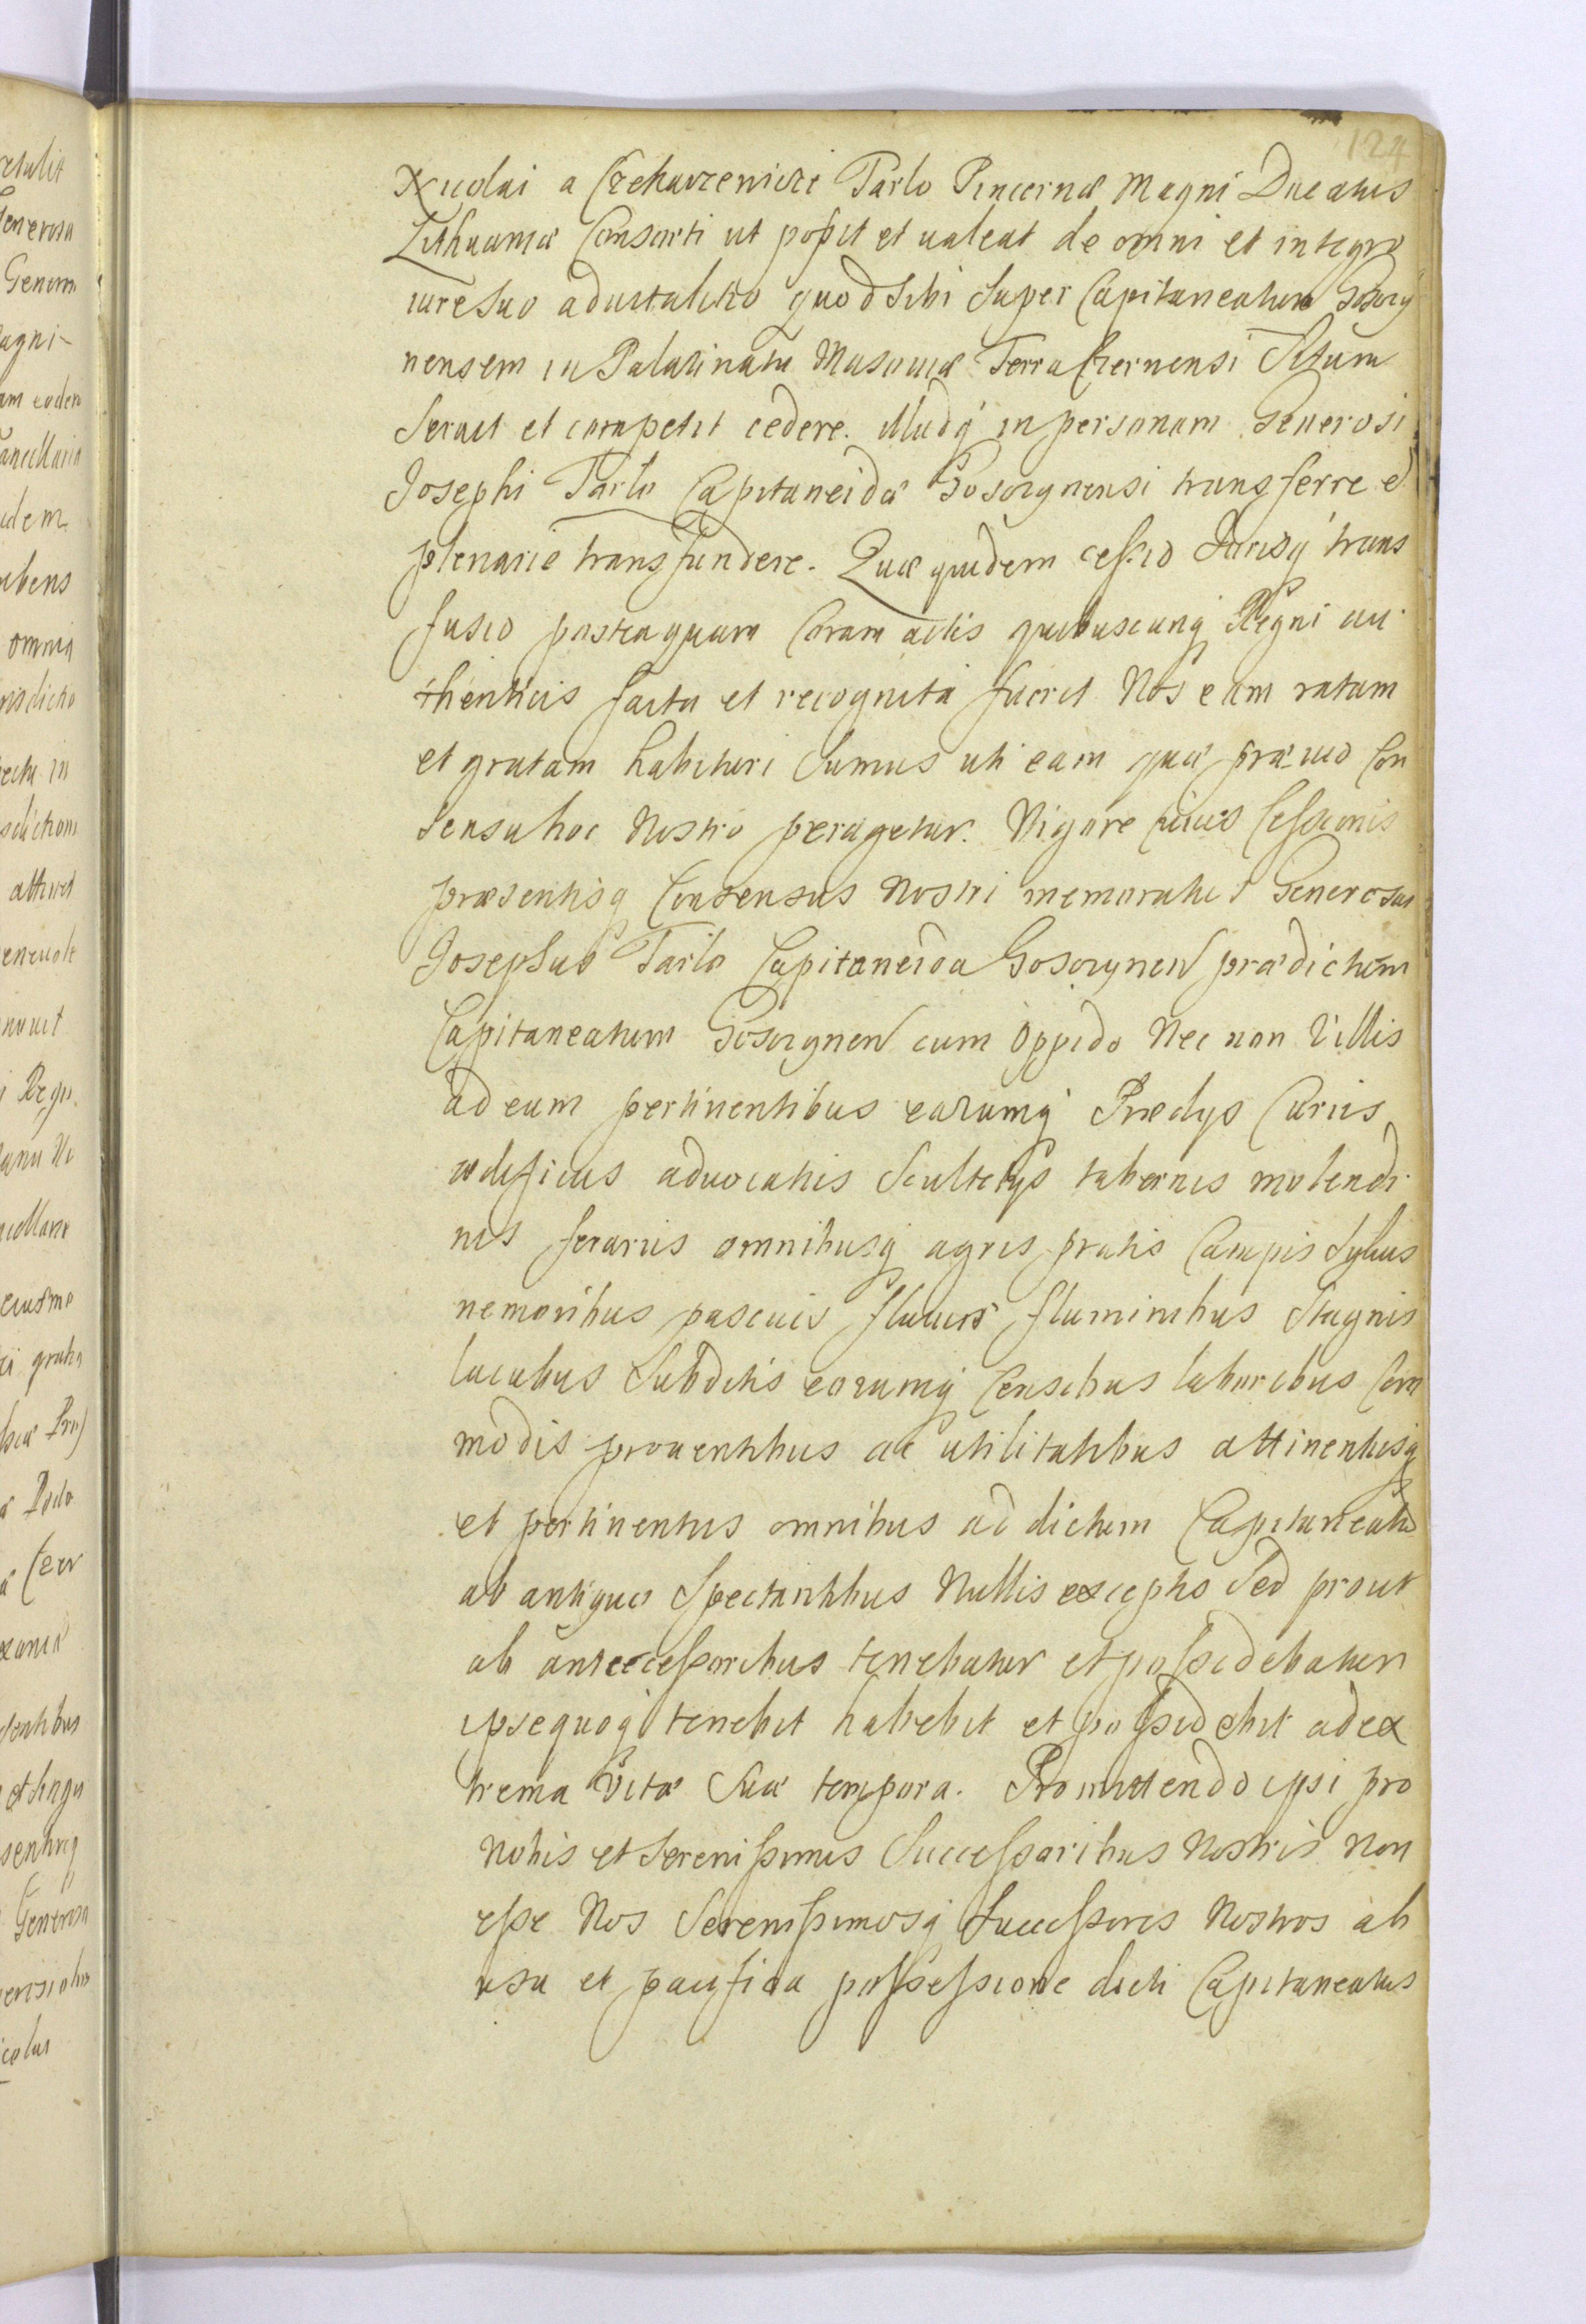 124
Nicolai a Czekarzewicze Tarlo Pincernæ Magni Ducatus
Lithuaniæ Consorti ut possit et ualeat de omni et integro
iure suo aduitalitio quod sibi super Capitaneatum Goszczy
nensem in Palatinatu Masouiæ Terra Czernensi Situm
Seruit et competit cedere. illudq in personam Generosi
Josephi Tarlo Capitaneidæ Goszczynensi transferre et
plenarie transfundere. Quæ quidem cessio Jurisq trans
fusio posteaquam Coram actis quibuscunq Regni au
thenticis facta et recognita fuerit Nos eam ratam
et gratam habituri Sumus uti eam quæ præuio Con
sensu hoc Nostro peragetur. Vigore cuius Cessionis
præsentisq Consensus Nostri memoratus Generosus
Josephus Tarlo Capitaneida Goszczynen prædictum
Capitaneatum Goszczynen cum Oppido Nec non Villis
ad eum pertinentibus earumq Prædys Curiis
ædificiis aduocatiis Scultetys tabernis molendi
nis ferariis omnibusq agris pratis Campis Syluis
nemoribus pascuis fluuiis fluminibus Stagnis
lacubus Subditis eorumq Censibus laboribus Com
modis prouentibus ac utilitatibus attinentiisq
et pertinentiis omnibus ad dictum Capitaneatu
ab antiquo Spectantibus Nullis exceptis Sed prout
ab antecessoribus tenebatur et possidebatur
ipse quoq tenebit habebit et possidebit ad ex
trema Vitæ Suæ tempora. Promittendo ipsi pro
Nobis et Serenissimis Successoribus Nostris Non
esse Nos Serenissimosq Successores Nostros ab
usu et pacifica possessione dicti Capitaneatus